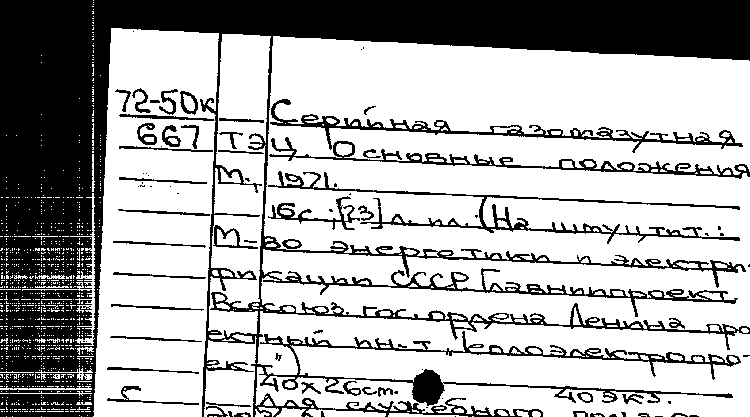 72-50к Серийная газомазутная
667 ТЭЦ. Основные положения
М., 1971.
16с.; [23] л. ил. (На шмуцтит.:
М-во энергетики и электри-
фикации СССР Главниипроект
Всесоюз. гос. ордена Ленина про
ектный ин-т „Теплоэлектропро-
ект").
40х26см. 40 экз.
С Для служебного